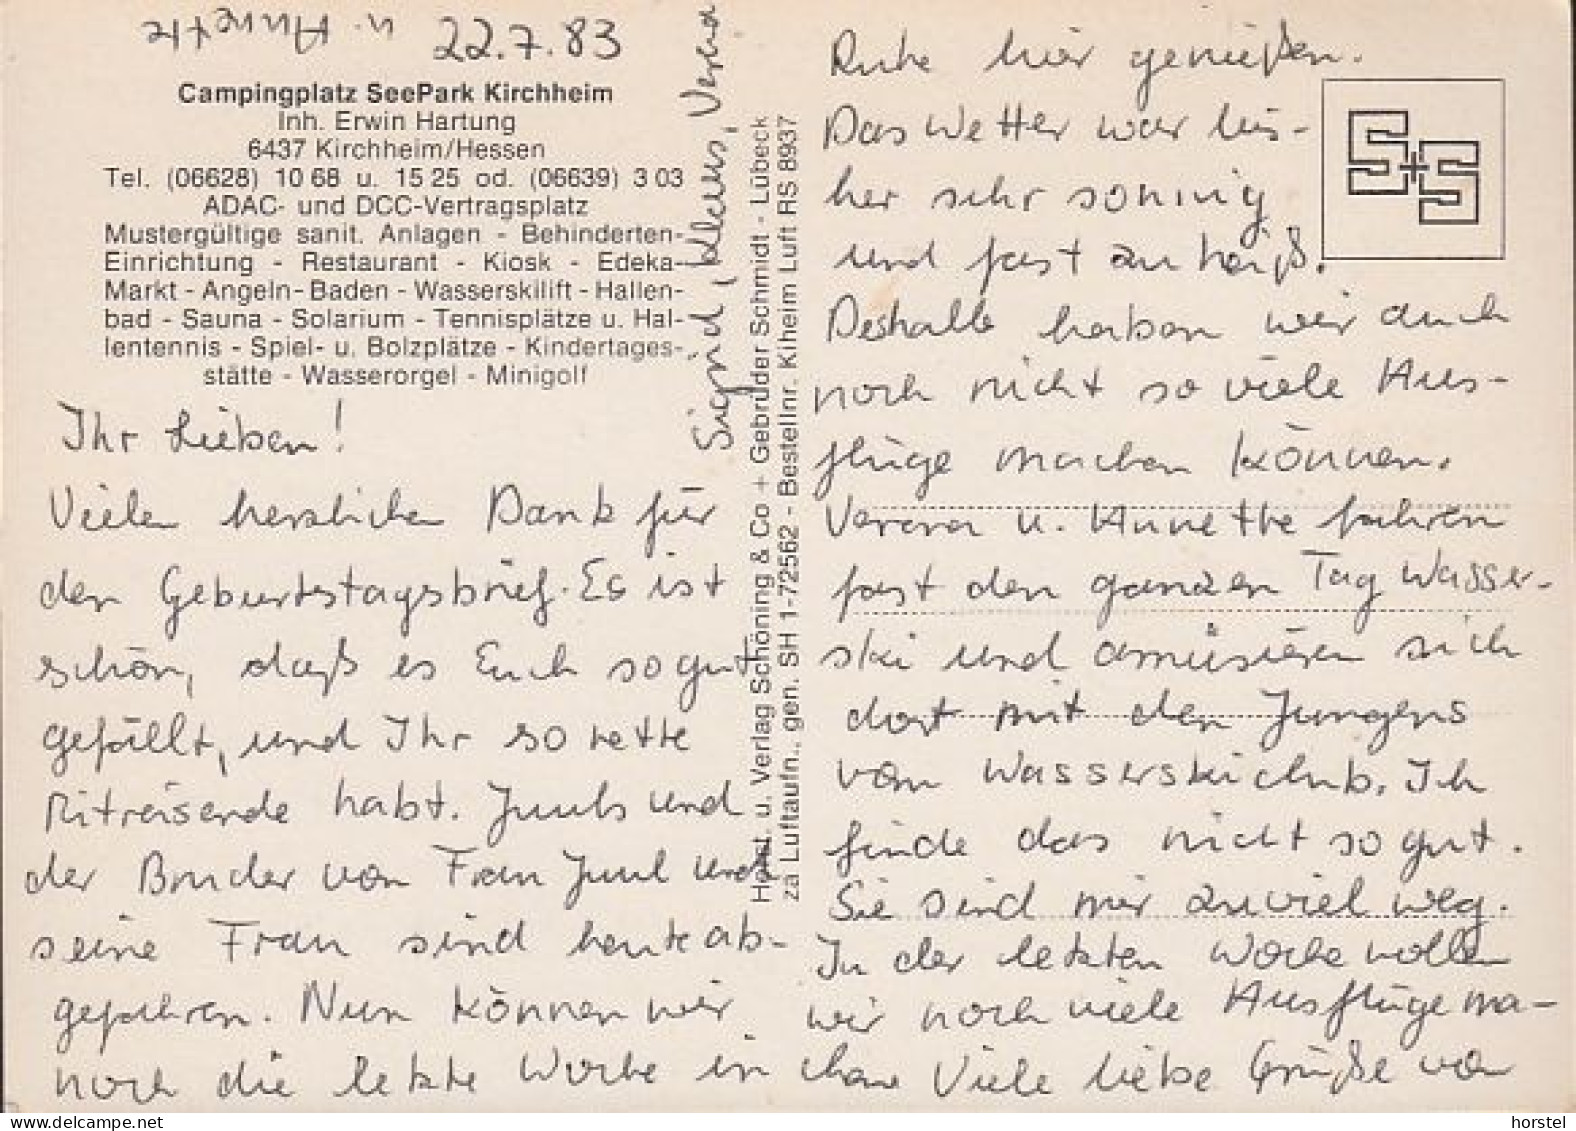 22.7.83
Campingplatz SeePark Kirchheim
Inh. Erwin Hartung
6437 Kirchheim/Hessen
Tel. (06628) 10 68 u. 15 25 od. (06639) 3 03
ADAC- und DCC-Vertragsplatz
Mustergültige sanit. Anlagen - Behinderten-
Einrichtung - Restaurant - Kiosk - Edeka-
Markt - Angeln - Baden - Wasserskilift - Hallen-
bad - Sauna - Solarium - Tennisplätze u. Hal-
lentennis - Spiel- u. Bolzplätze - Kindertages-
stätte - Wasserorgel - Minigolf
Ihr Lieben!
Vielen herzlichen Dank für
den Geburtstagsbrief. Es ist
schön, daß es Euch so gut
gefällt, und Ihr so nette
Mitreisende habt. Juuls und
der Bruder von Frau Juul und
seine Frau sind heute ab-
gefahren. Nun können wir
noch die letzte Woche in
Ruhe hier genießen.
Das Wetter war bis-
her sehr sonnig
und fast zu heiß.
Deshalb haben wir auch
noch nicht so viele Aus-
flüge machen können.
Verena u. Annette fahren
fast den ganzen Tag Wasser-
ski und amüsieren sich
dort mit den Jungens
vom Wasserskiclub. Ich
finde das nicht so gut.
Sie sind mir zuviel weg.
In der letzten Woche wollen
wir noch viele Ausflüge ma-
chen Viele liebe Grüße von
Sigrid, Klaus, Verena
u. Annette
Horst. u. Verlag Schöning & Co + Gebrüder Schmidt - Lübeck
za Luftaufn., gen. SH 1-72562 - Bestellnr. Kiheim Luft RS 8937
S+S
horstel